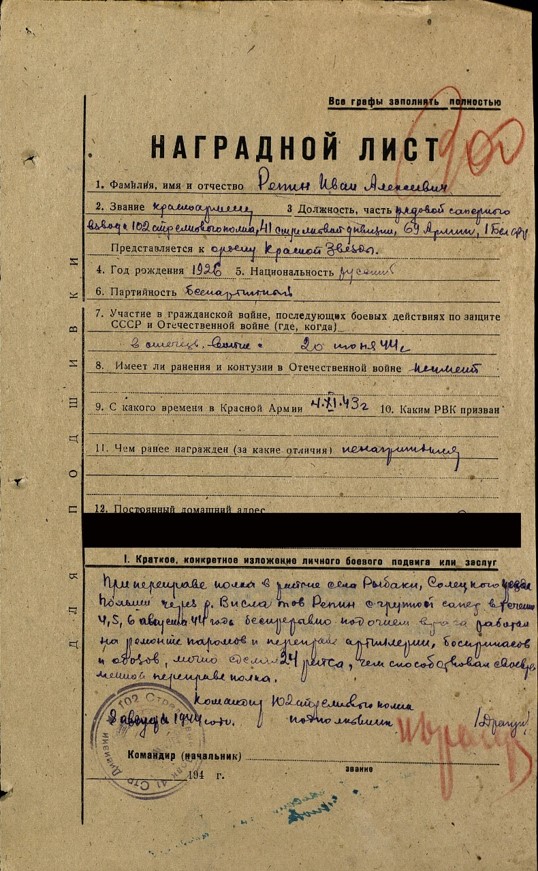 Все графы заполнять полностью
НАГРАДНОЙ ЛИСТ
1. Фамилия, имя и отчество Репин Иван Алексеевич
2. Звание красноармеец 3 Должность, часть рядовой саперного
взвода 102 стрелкового полка, 41 стрелковой дивизии, 69 Армии, 1 Бел фр
Представляется к ордену Красной Звезды.
4. Год рождения 1926 5. Национальность русский
6. Партийность беспартийный
7. Участие в гражданской войне, последующих боевых действиях по защите
СССР и Отечественной войне (где, когда)
в отечеств. войне 20 июня 44 г
8. Имеет ли ранения и контузии в Отечественной войне не имеет
9. С какого времени в Красной Армии 4.XI.43 г 10. Каким РВК призван
11. Чем ранее награжден (за какие отличия) не награждался
12. Постоянный домашний адрес
I. Краткое, конкретное изложение личного боевого подвига или заслуг
При переправе полка в районе села Рыбаки, Солецкого
Польши через р. Висла тов Репин с группой сапер в течении
4, 5, 6 августа 44 года беспрерывно под огнем врага работал
на ремонте паромов и переправе артиллерии, боеприпасов
и обозов, лично сделал 24 рейса, чем способствовал своевре-
менной переправе полка.
Командир 102 стрелкового полка
8 августа 1944 года. подполковник /Драгун/
Командир (начальник)
194 г.
звание
ДЛЯ ПОДШИВКИ